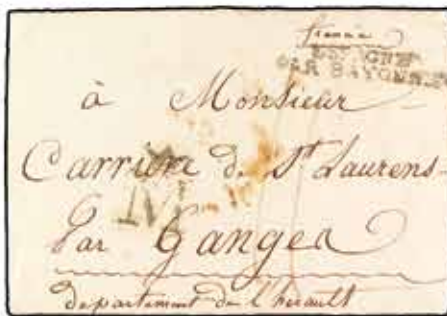 france
ESPAGNE
PAR BAYONNE
à Monsieur
Carrion de St Laurens
Par Ganges
departement de l'herault